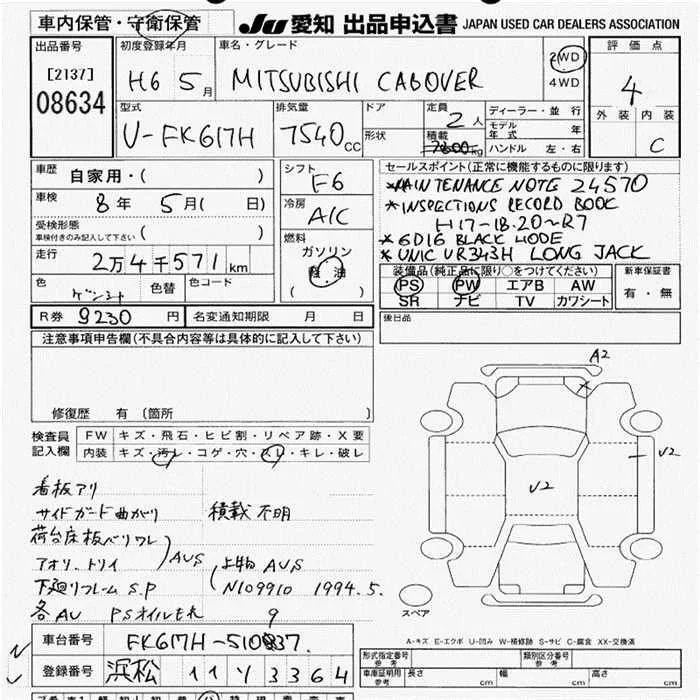 車内保管・守衛保管 JU 愛知 出品申込書 JAPAN USED CAR DEALERS ASSOCIATION
出品番号 初度登録年月 車名・グレード 評価点
[2137] 08634 H6 5月 MITSUBISHI CABOVER 2WD 4WD 4
外装 内装 C
型式 排気量 ドア 定員 ディーラー・並行
U-FK617H 7540cc 形状 2人 積載 kg モデル年式 年 ハンドル 左・右
車歴 自家用・( )
車検 8年 5月( 日)
受検形態 車検付きのみ記入して下さい ( )
走行 2万4千571km
色 色替 色コード
シフト F6
冷房 A/C
燃料 ガソリン 軽油 ( )
セールスポイント(正常に機能するものに限ります)
*MAINTENANCE NOTE 24570
*INSPECTIONS RECORD BOOK
H17-18.20~R7
*6D16 BLACK MODE
*UNIC UR343H LONG JACK
装備品(純正品に限り○をつけてください) 新車保証書
PS PW エアB AW 有・無
SR ナビ TV カワシート
R券 9230円 名変通知期限 月 日 後日品
注意事項申告欄(不具合内容等は具体的に記入して下さい)
修復歴 有 (箇所 )
検査員記入欄 FW キズ・飛石・ヒビ割・リペア跡・X要
内装 キズ・汚レ・コゲ・穴・スレ・キレ・破レ
A2
V2
V2
看板アリ
サイドガード曲がり 積載不明
荷台床板バリワレ
アオリ、トリイ AUS 上物 AUS
下廻リフレーム S.P N109910 1994.5.
各AU PSオイルモレ 9
スペア
A-キズ E-エクボ U-凹み W-補修跡 S-サビ C-腐食 XX-交換済
車台番号 FK617H-510837.
登録番号 浜松 11ソ3364
形式指定番号 参考 類別区分番号 参考
車庫証明用 参考 長さ cm 幅 cm 高さ cm